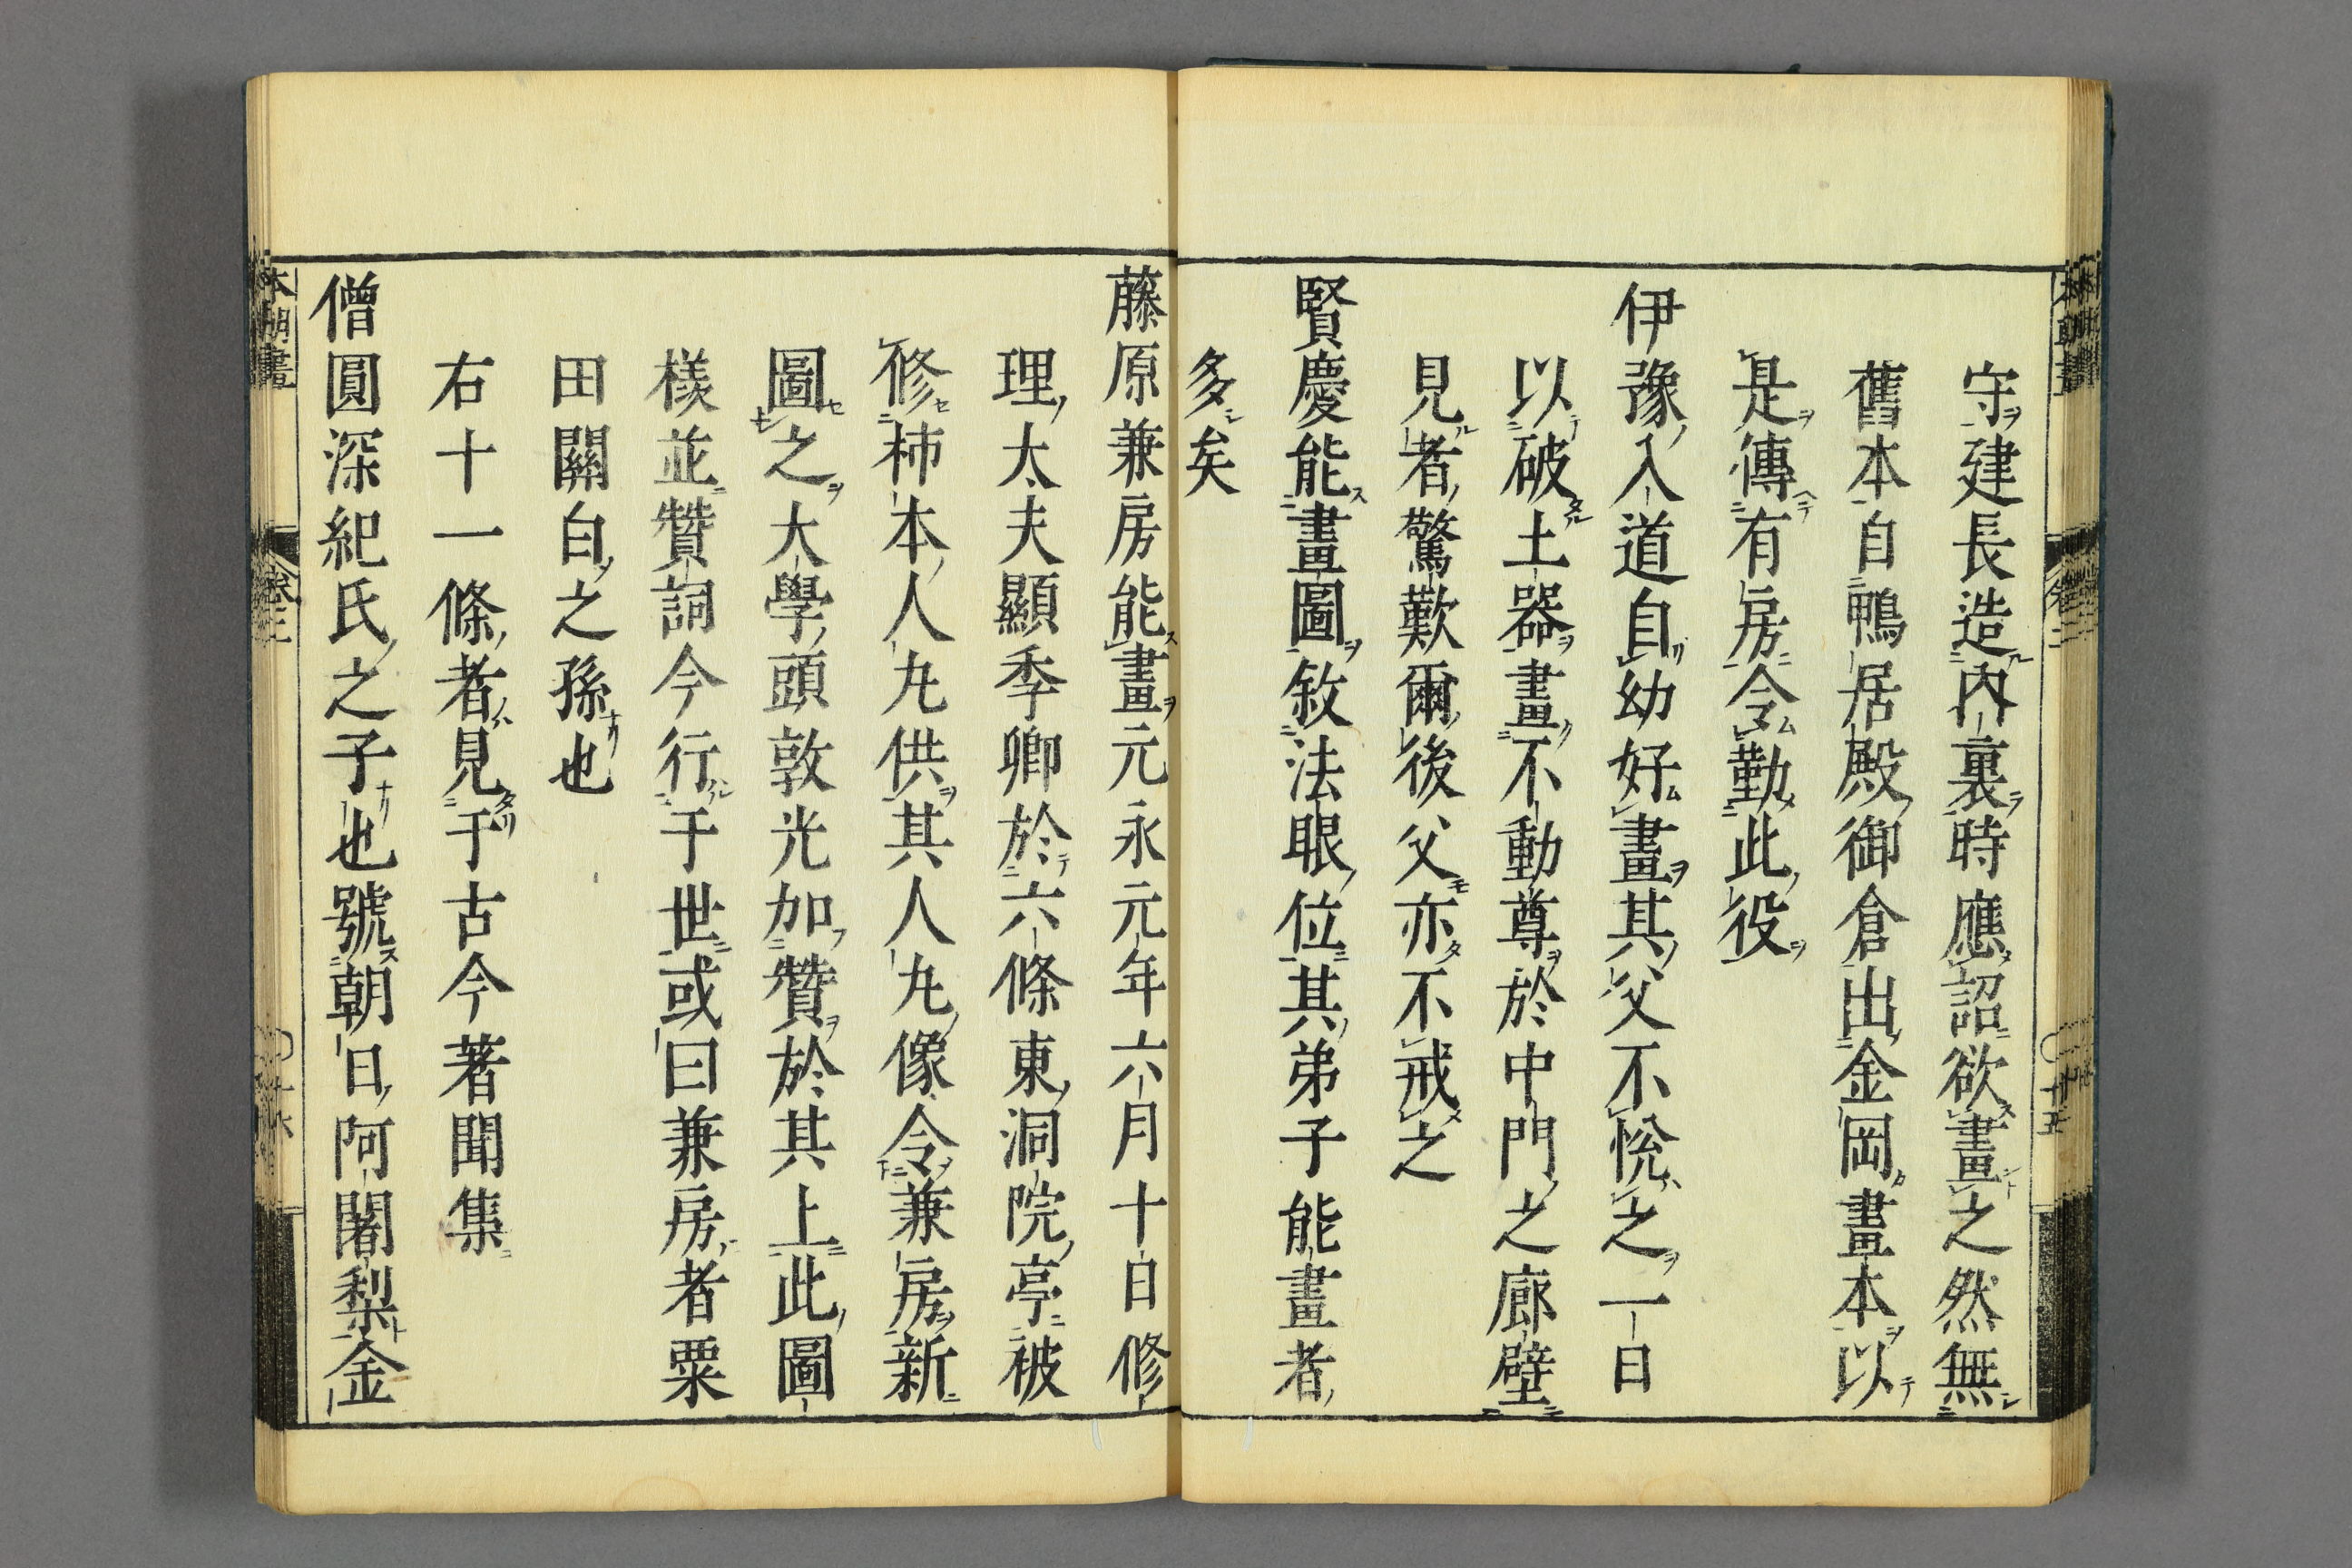 守建長造內裏時應詔欲畫之然無
舊本自鴨居殿御倉出金岡畫本以
是傳有房令勤此役
伊豫入道自幼好畫其父不悅之一日
以破土器畫不動尊於中門之廊壁
見者驚歎爾後父亦不戒之
賢慶能畫圖敘法眼位其弟子能畫者
多矣
藤原兼房能畫元永元年六月十日修
理太夫顯季卿於六條東洞院亭被
修柿本人丸供其人丸像令兼房新
圖之大學頭敦光加贊於其上此圖
樣並贊詞今行于世或曰兼房者粟
田關白之孫也
右十一條者見于古今著聞集
僧圓深紀氏之子也號朝日阿闍梨金
本朝畫
卷三
十六